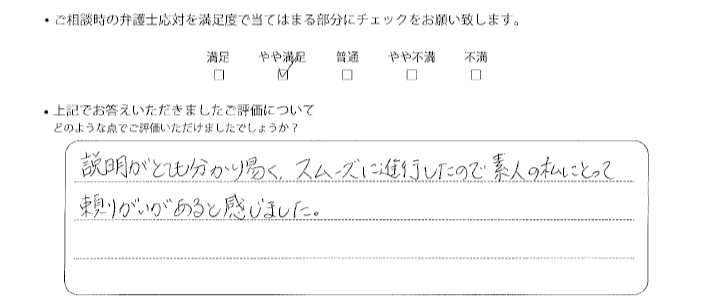 ・ご相談時の弁護士応対を満足度で当てはまる部分にチェックをお願い致します。
満足 やや満足 普通 やや不満 不満
□ ☑ □ □ □
・上記でお答えいただきましたご評価について
どのような点でご評価いただけましたでしょうか？
説明がとても分かり易く、スムーズに進行したので素人の私にとって
頼りがいがあると感じました。